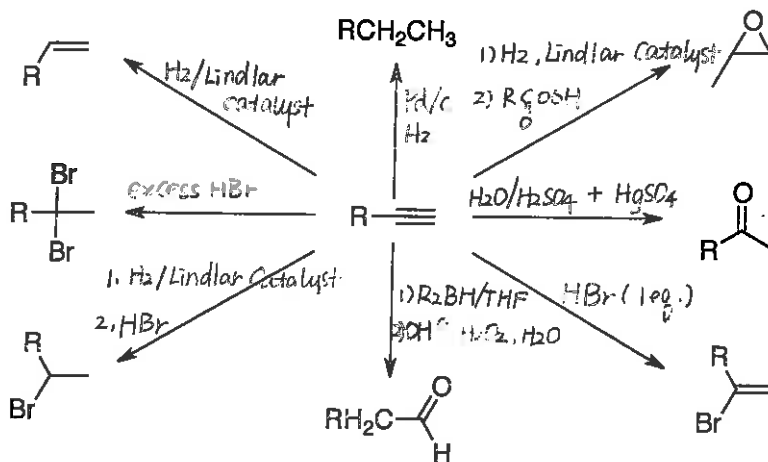 RCH2CH3
O
1) H2, Lindlar Catalyst
R
H2/Lindlar
catalyst
Pd/C
H2
2)
O
Br
R
Br
excess HBr
R
H2O/H2SO4 + HgSO4
O
R
1. H2/Lindlar Catalyst
2. HBr
1) R2BH/THF
H2O2, H2O
HBr (1 eq.)
R
Br
RH2C
O
H
R
Br